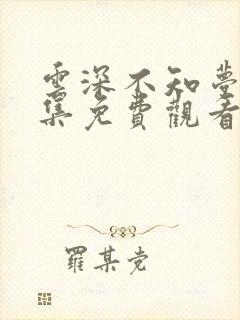 雲深不知夢
集免費觀看
羅某党